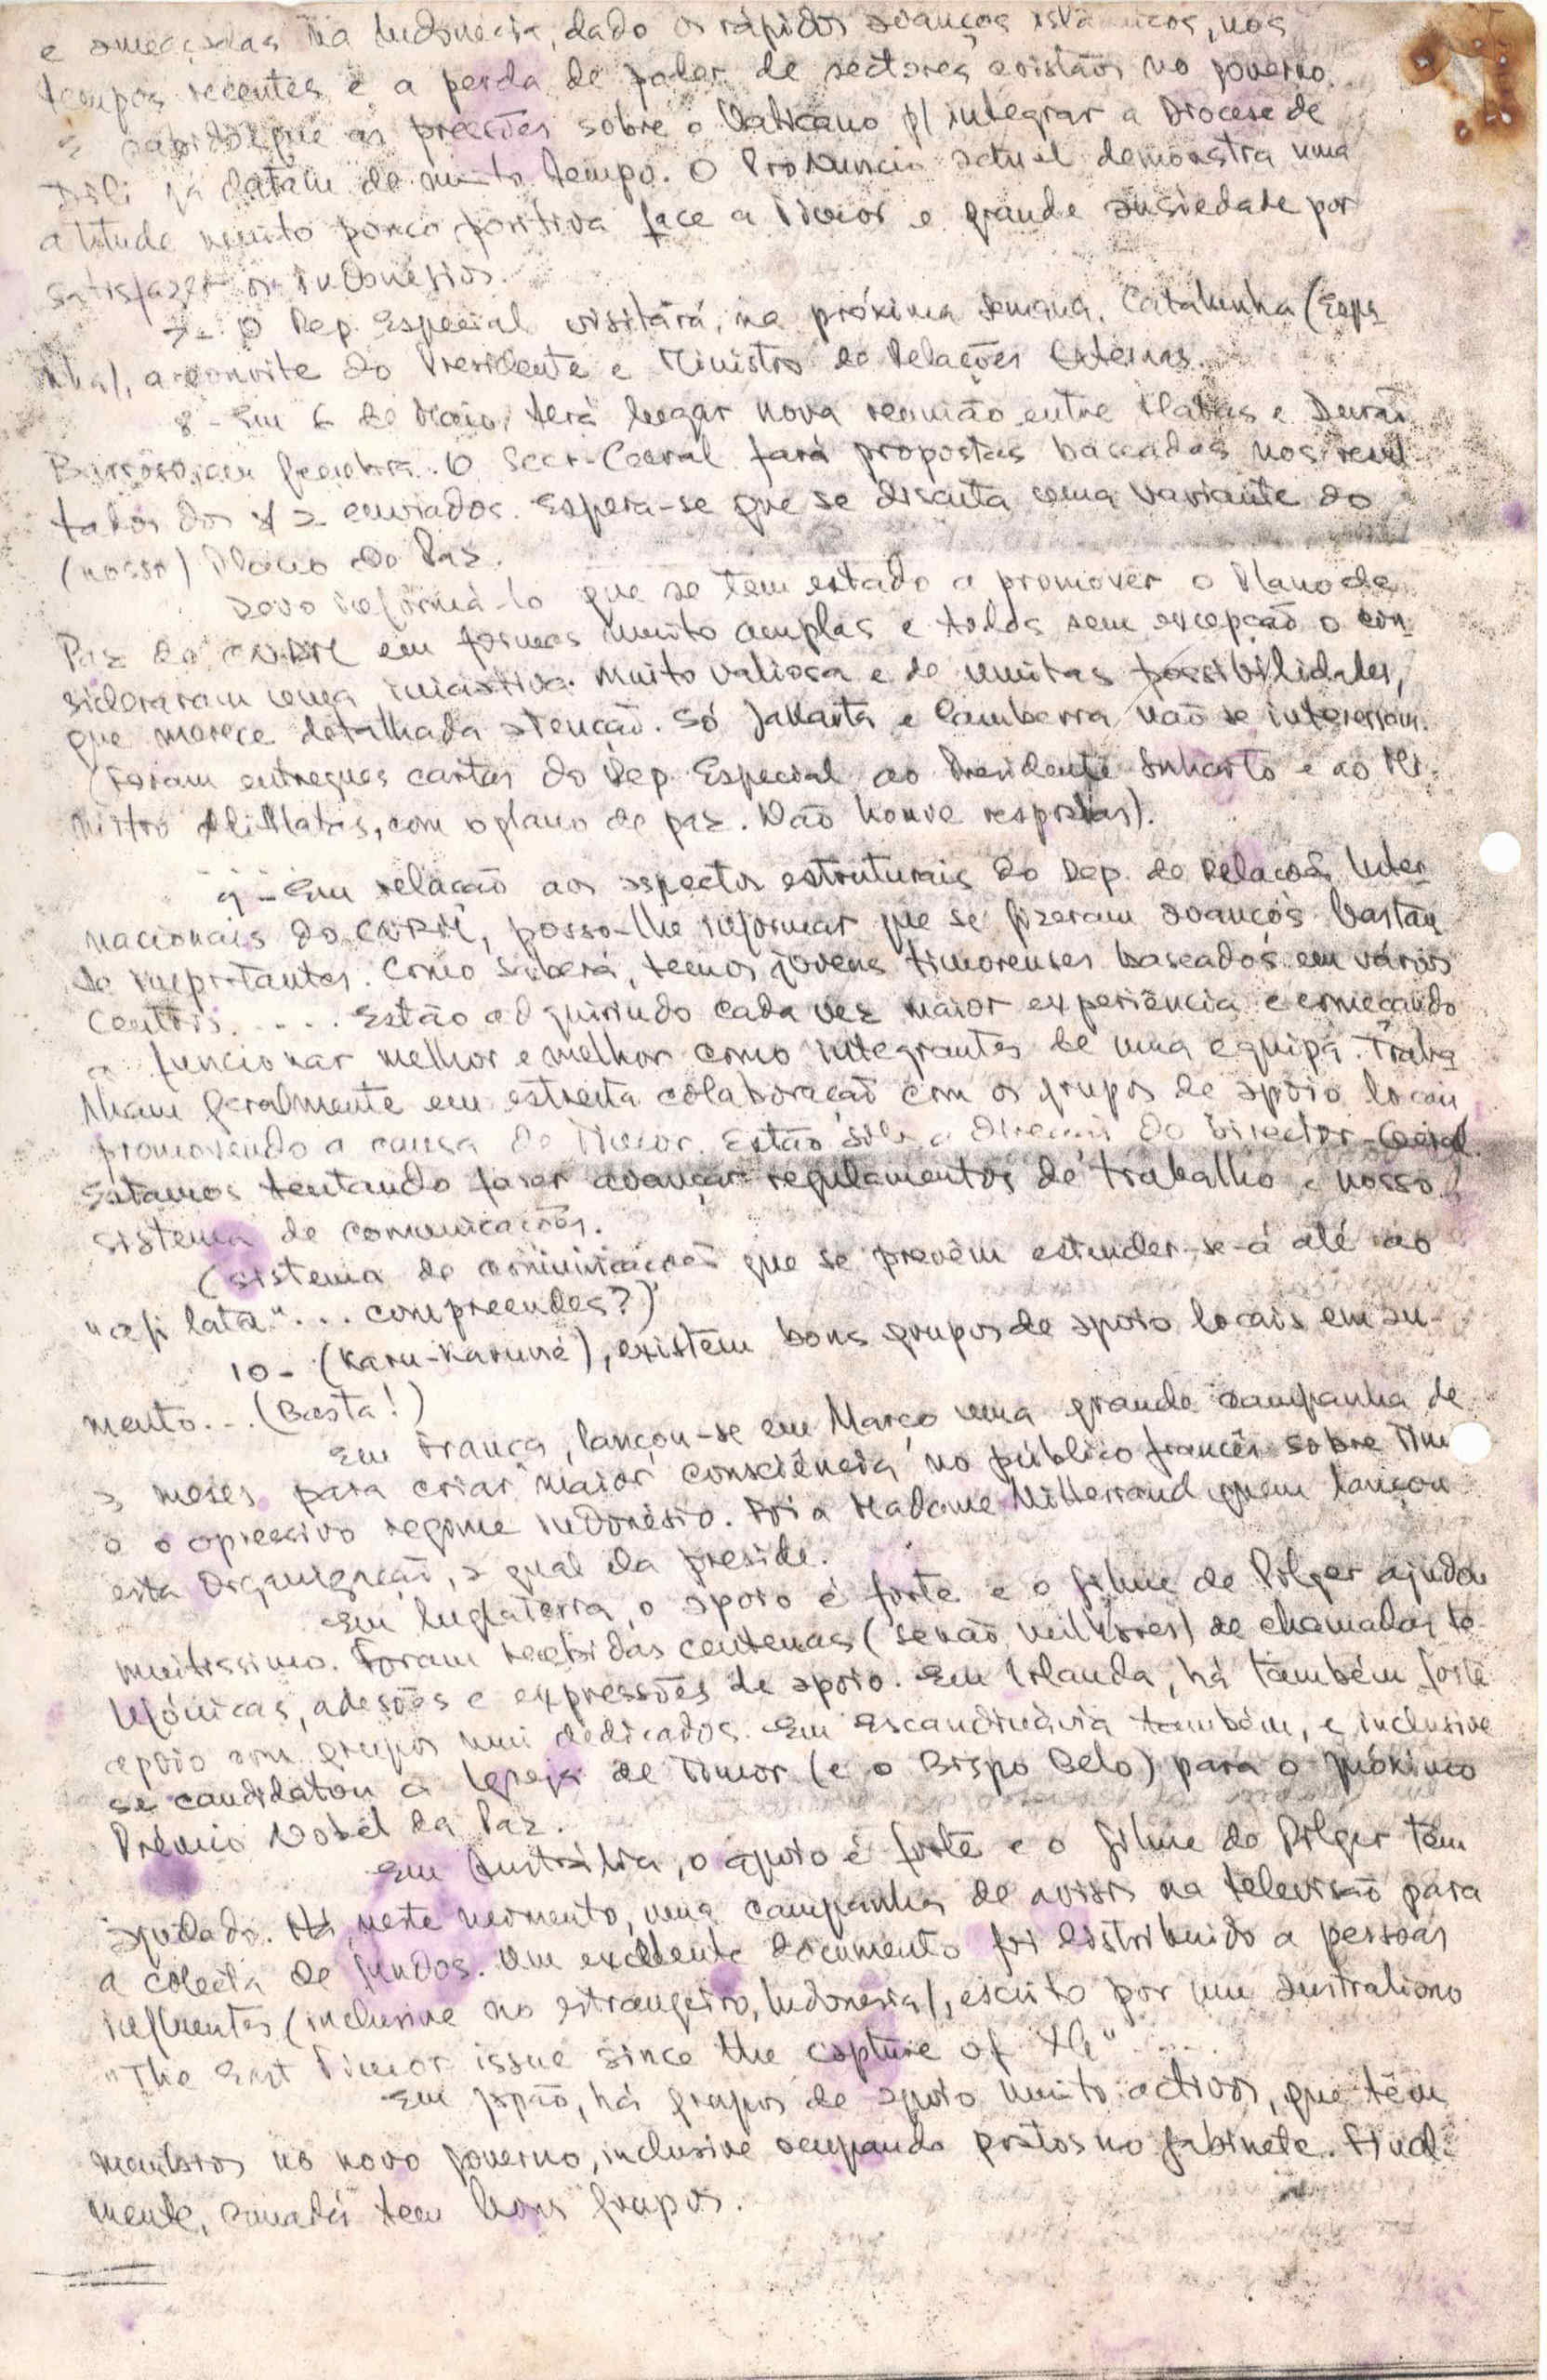 e ameaçadas na Indonésia, dado os rápidos avanços islâmicos, nos
tempos recentes e a perda de poder de sectores cristãos no governo.
É sabido que as pressões sobre o Vaticano p/ integrar a Diocese de
Díli já datam de muito tempo. O Pro Nuncio actual demonstra uma
atitude muito pouco positiva face a Timor e grande ansiedade por
satisfazer os indonésios.
7- O Rep. Especial visitará, na próxima semana, Catalunha (Espa
nha), a convite do Presidente e Ministro de Relações Externas.
8 - Em 6 de Maio, terá lugar nova reunião entre Alatas e Durão
Barroso, em Genebra. O Secr-Geral fará propostas baseadas nos resul
tados dos 2 enviados. Espera-se que se discuta uma variante do
(nosso) Plano de Paz.
Devo informá-lo que se tem estado a promover o Plano de
Paz do CNRM em formas muito amplas e todos sem excepção o con
sideraram uma iniciativa muito valiosa e de muitas possibilidades,
que merece detalhada atenção. Só Jakarta e Camberra não se interessam.
(Foram entregues cartas do Rep. Especial ao Presidente Suharto e ao Mi-
nistro Ali Alatas, com o plano de paz. Não houve respostas).
9 - Em relação aos aspectos estruturais do Dep. de Relações Inter
nacionais do CNRM, posso-lhe informar que se fizeram avanços bastan
te importantes. Como saberá, temos jovens timorenses baseados em vários
Centros. . . . . Estão adquirindo cada vez maior experiência e começando
a funcionar melhor e melhor como integrantes de uma equipa. Traba
lham geralmente em estreita colaboração com os grupos de apoio locais
promovendo a causa de Timor. Estão sob a direcção do Director-Geral.
Estamos tentando fazer avançar regulamentos de trabalho e nosso
sistema de comunicações.
(sistema de comunicações que se prevêm estender-se-á até ao
"api lata" . . . compreendes?)
10 - (Karu-Karuné), existem bons grupos de apoio locais em au-
mento. . . (Basta!)
Em França, lançou-se em Março uma grande campanha de
3 meses para criar maior consciência no público francês sobre Tim
e o opressivo regime indonésio. Foi a Madame Mitterrand quem lançou
esta Organização, a qual ela preside.
Em Inglaterra, o apoio é forte e o filme de Pilger ajudou
muitíssimo. Foram recebidas centenas (senão milhares) de chamadas te-
lefónicas, adesões e expressões de apoio. Em Irlanda, há também forte
apoio com grupos mui dedicados. Em Escandinávia também, e inclusive
se candidatou a Igreja de Timor (e o Bispo Belo) para o próximo
Prémio Nobel da Paz.
Em Austrália, o apoio é forte e o filme do Pilger tem
ajudado. Há, neste momento, uma campanha de avisos na televisão para
a colecta de fundos. Um excelente documento foi distribuido a pessoas
influentes (inclusive no estrangeiro, Indonésia), escrito por um australiano
"The East Timor issue since the capture of XG" . . . .
Em Japão, há grupos de apoio muito activos, que têm
membros no novo governo, inclusive ocupando postos no gabinete. Final-
mente, Canadá tem bons grupos.